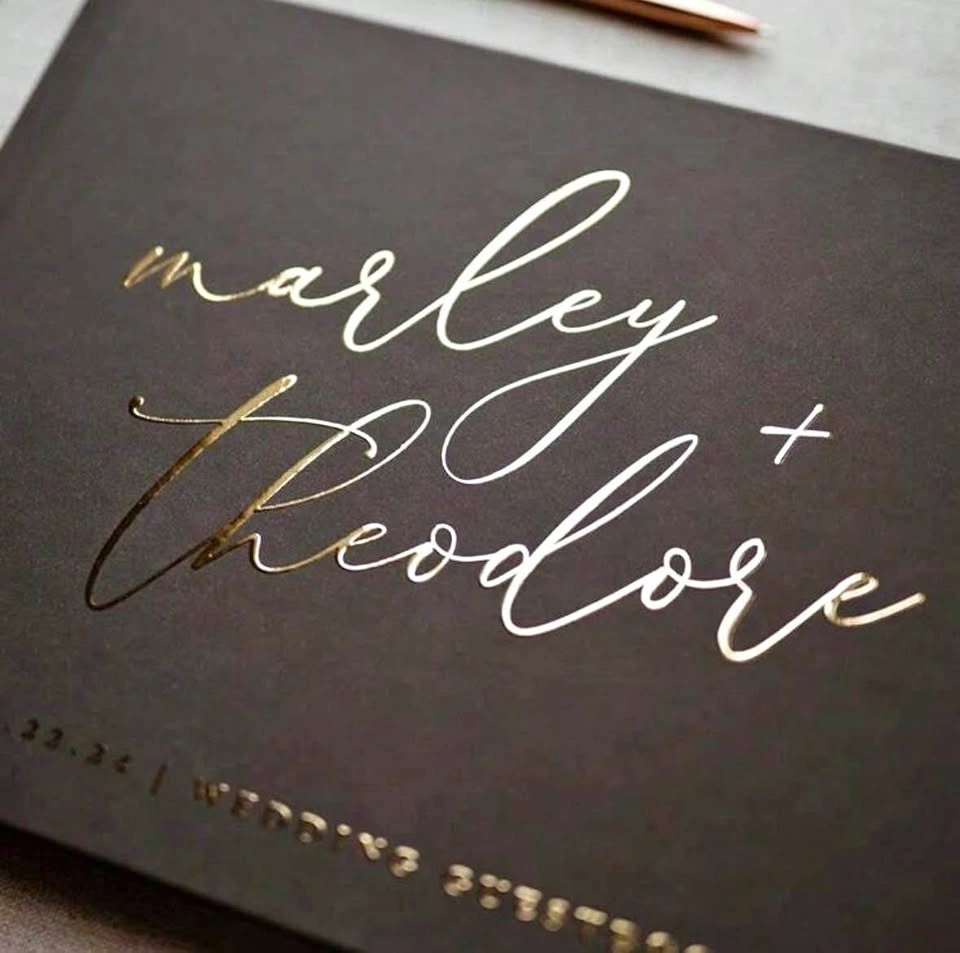 marley +
theodore
22.24 | WEDDING GUESTBOO